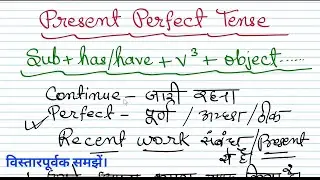 Present Perfect Tense
Sub + has/have + v³ + object......
Continue - जारी रहना
Perfect - पूर्ण / अच्छा / ठीक
Recent work संबंध / Present
से है
विस्तारपूर्वक समझें।